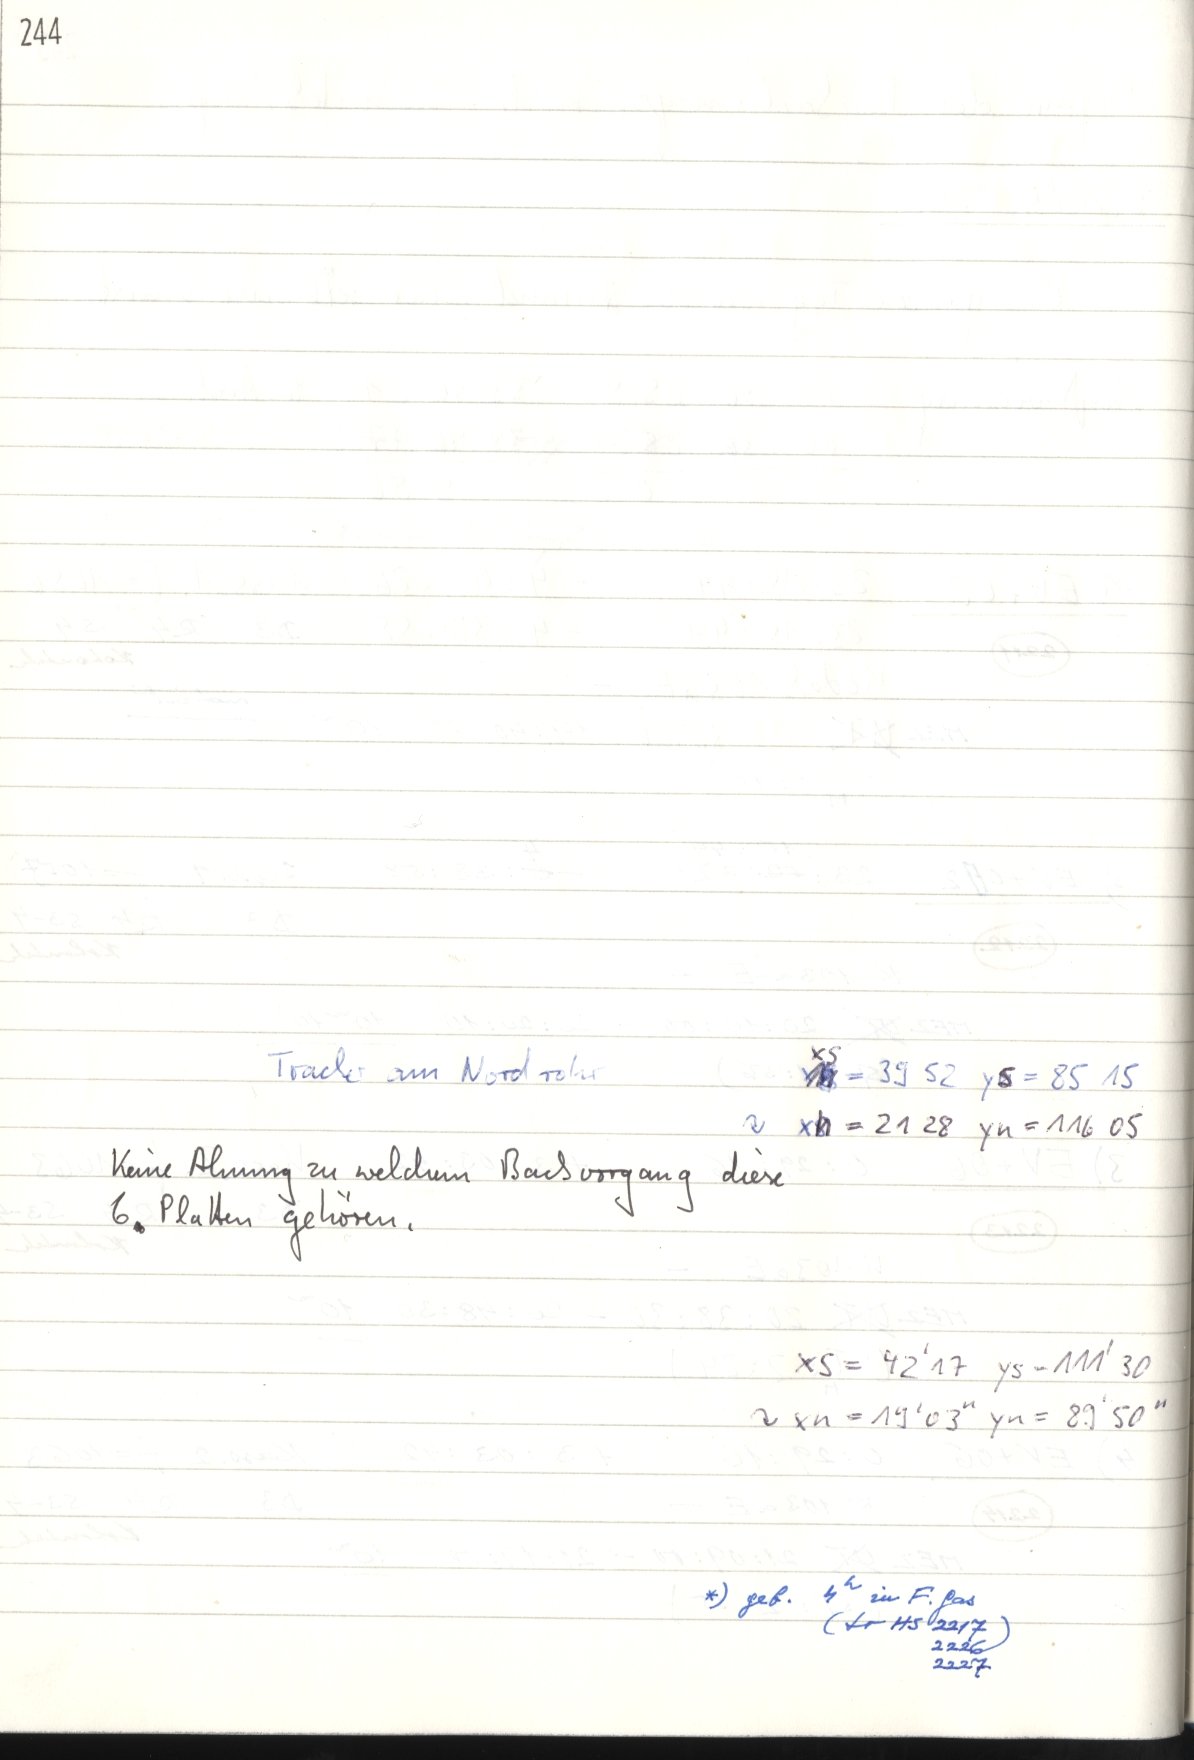 244
Tracker am Nordrohr xs = 39 52 ys = 85 15
xn = 21 28 yn = 116 05
Keine Ahnung zu welchem Backvorgang diese
6. Platten gehören.
xs = 42' 17 ys = 111' 30
xn = 19' 03" yn = 89' 50"
*) geb. 4h in F. Gas
( HS 2217)
2226
2227